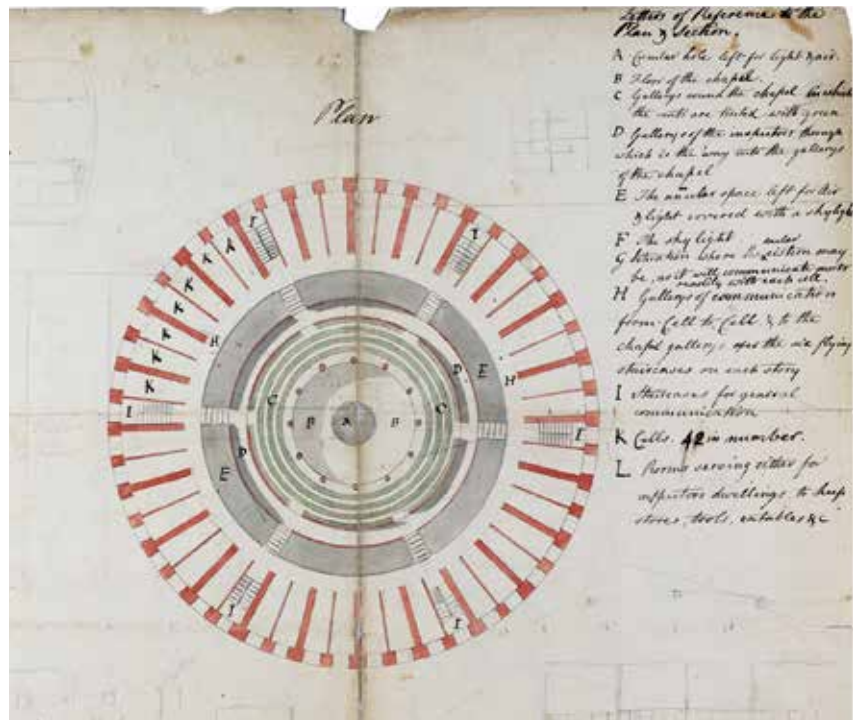 Letters of Reference to the
Plan & Section.
A Circular hole left for light & air.
B Floor of the chapel.
C Gallerys round the chapel in which
the seats are tinted with green
D Gallerys of the inspectors through
which is the way into the gallerys
of the chapel
E The anular space left for Air
& light covered with a skylight
F The sky light
G Situation where the cistern may
be, as it will communicate most
readily with each cell.
H Gallerys of communication
from Cell to Cell & to the
chapel gallerys over the six flying
staircases on each story
I Staircases for general
communication
K Cells. 42 in number.
L Rooms serving either for
inspectors dwellings, to keep
stores, tools, eatables &c
Plan
I
I
K
K
K
K
K
K
H
I
C
B
A
B
C
D
E
H
I
D
E
I
I